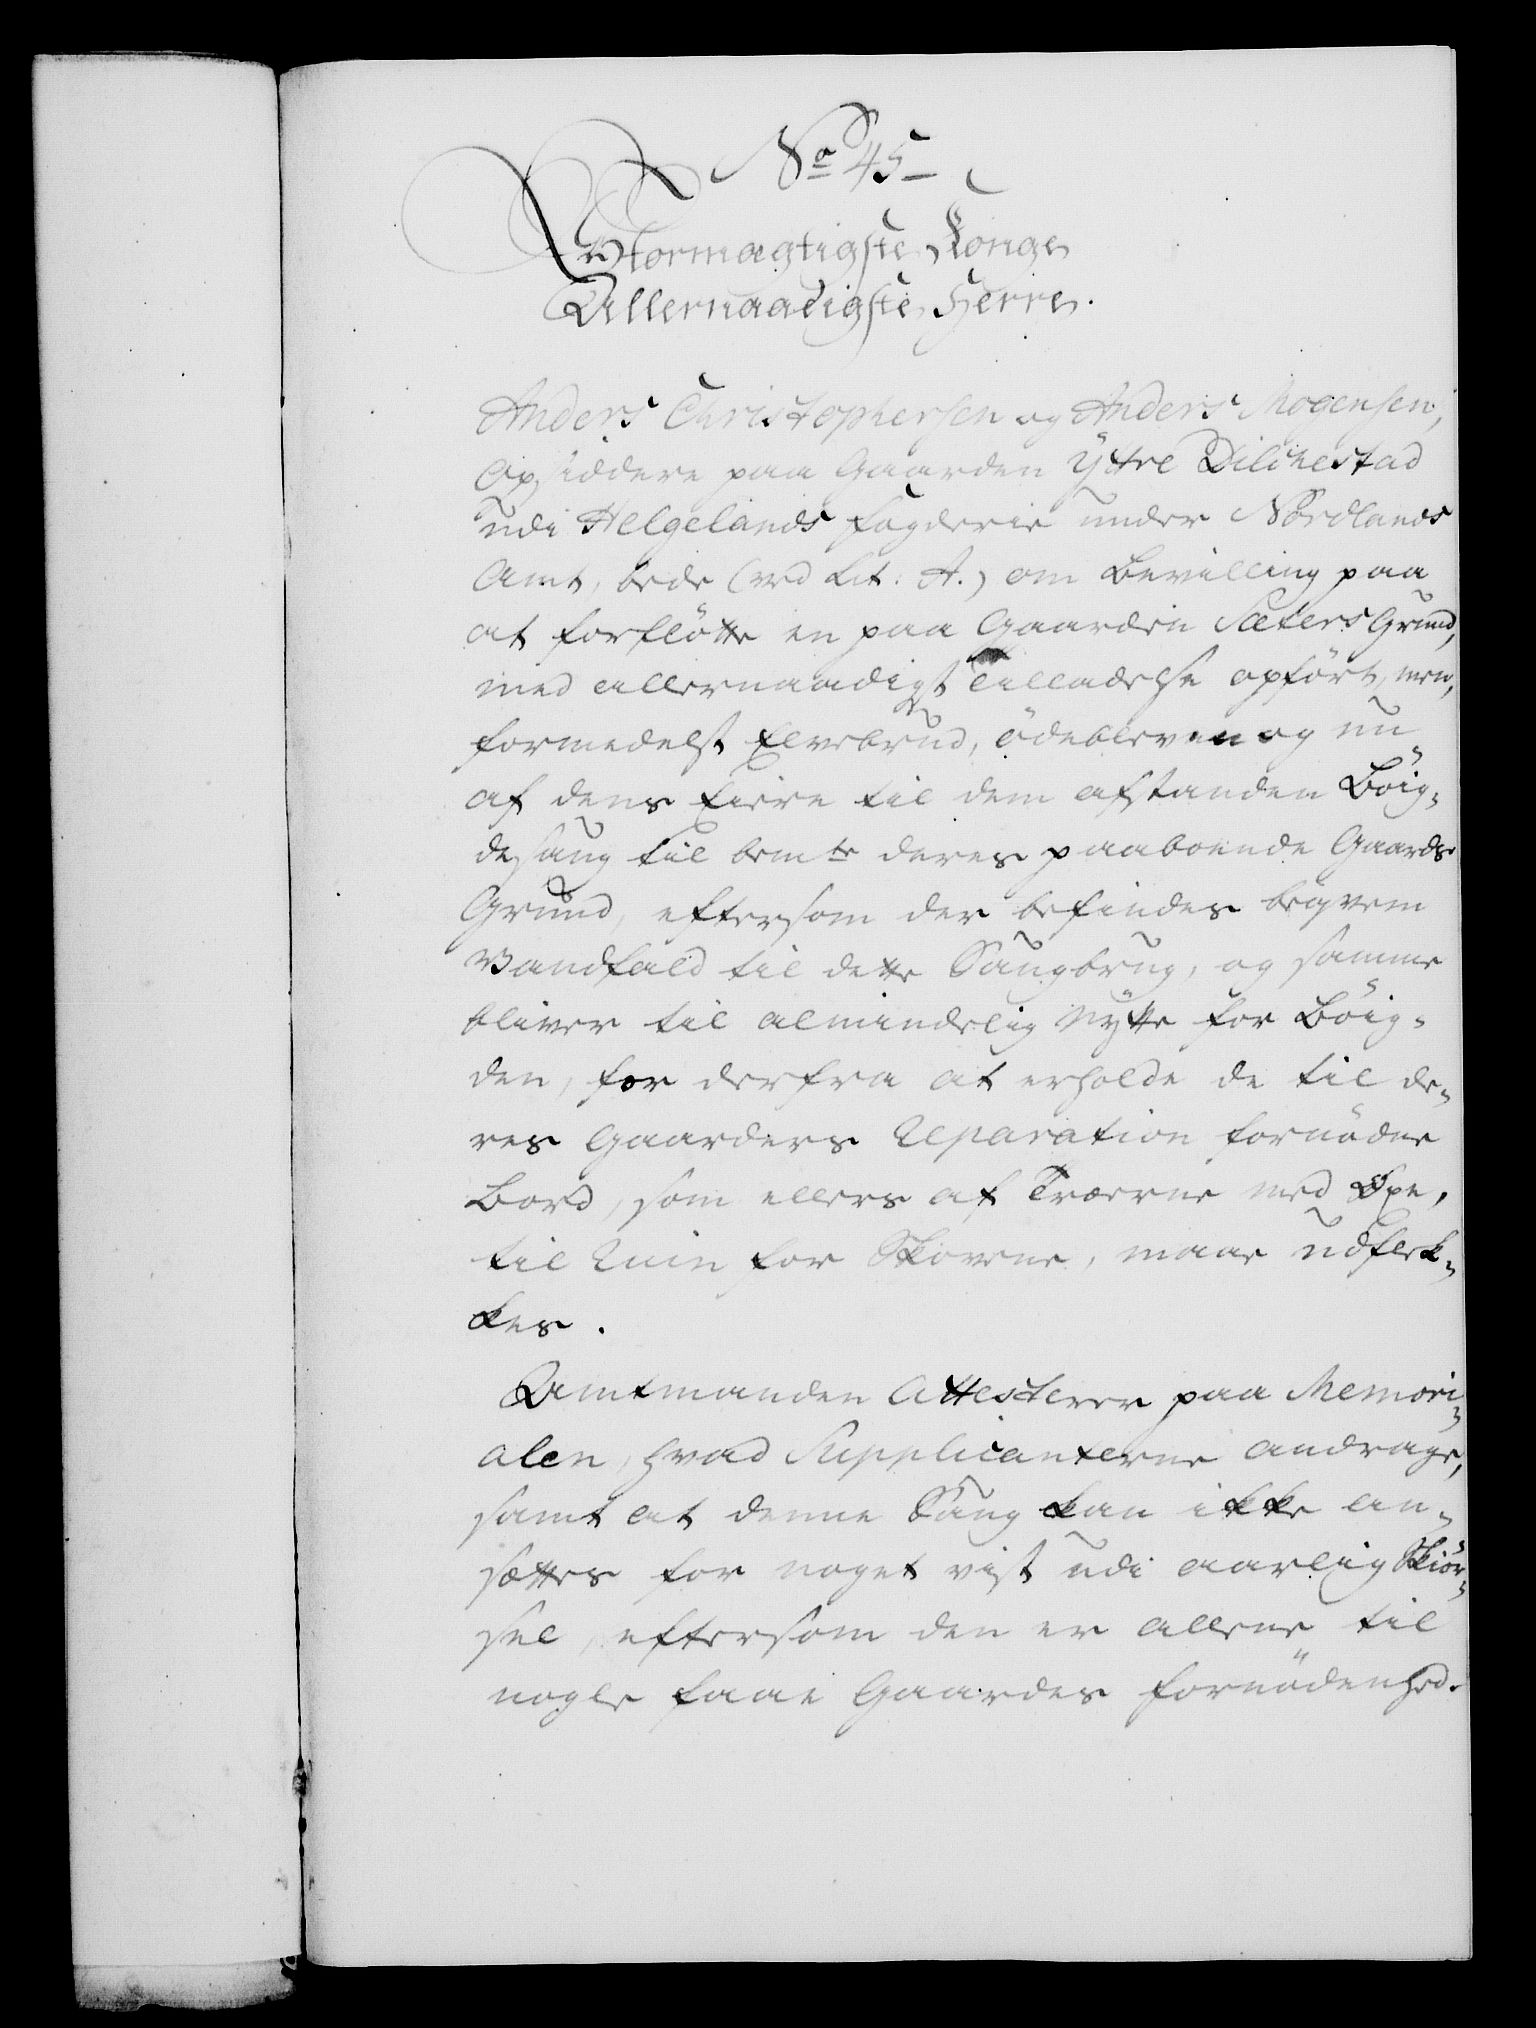 No 45
Stormægtigste Konge
Allernaadigste Herre.
Anders Christophersen og Anders Mogensen,
Opsiddere paa Gaarden Ÿttre
udi Helgelands Fogderie under Nordlands
Amt, bede (ved Lit: A.) om Bevilling paa
at forfløtte en paa Gaarden Sæters Grund,
med allernaadigst Tilladelse opført, men,
formedelst Elvebrud, ødebleven og nu
af dens Eiere til dem afstanden Bøig-
desaug til bemte deres paaboende Gaards
Grund, eftersom der befindes beqvem
Vandfald til dette Saugbrug, og samme
bliver til almindelig Nÿtte for Bøig-
den, for derfra at erholde de til de-
res Gaarders Reparation fornødne
Bord, som ellers af Træerne med Øxe,
til Ruin for Skovene, maae udflek-
kes.
Amtmanden Attesterer paa Memori-
alen, hvad Supplicanterne andrage,
samt at denne Saug kan ikke an-
sættes for noget vist udi aarlig Skiør-
sel, eftersom den er allene til
nogle faae Gaardes fornødenhed.